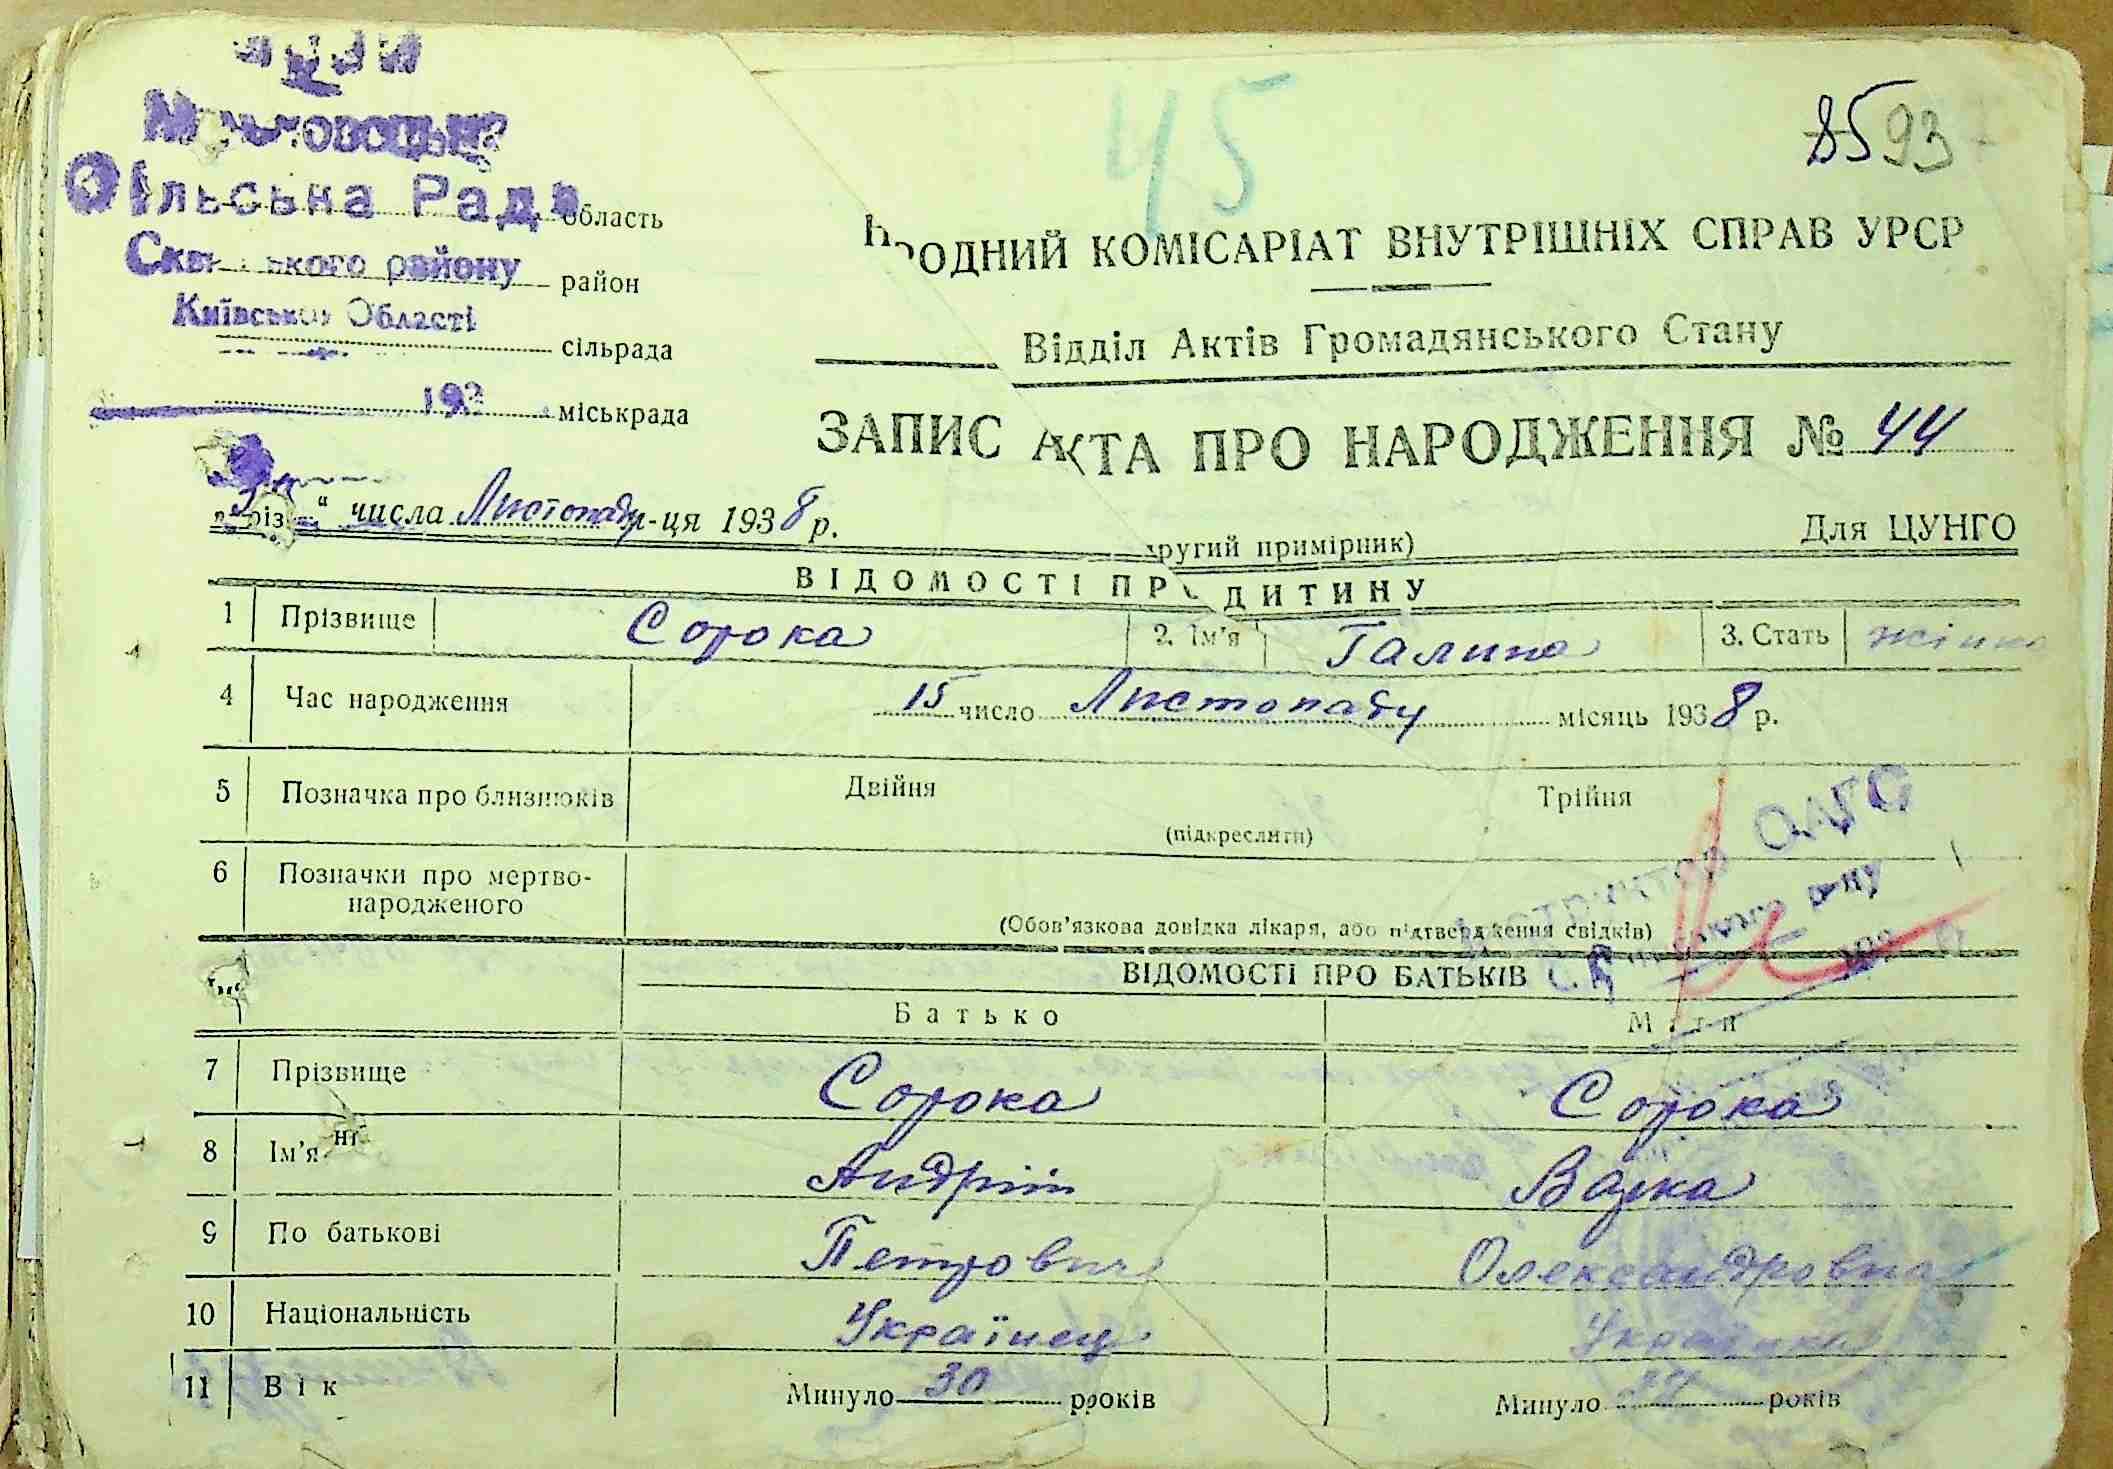 45
85 93
Сільська Рада область
Сквирського району район
Київської Області
сільрада
193 міськрада
НАРОДНИЙ КОМІСАРІАТ ВНУТРІШНІХ СПРАВ УРСР
Відділ Актів Громадянського Стану
ЗАПИС АКТА ПРО НАРОДЖЕННЯ № 44
" числа Листопаду м-ця 1938 р.
другий примірник)
Для ЦУНГО
ВІДОМОСТІ ПРО ДИТИНУ
1 Прізвище Сорока 2. Ім'я Галина 3. Стать жіноча
4 Час народження 15 число Листопаду місяць 1938 р.
5 Позначка про близнюків Двійня Трійня
(підкреслити)
6 Позначки про мертво-
народженого
(Обов'язкова довідка лікаря, або підтвердження свідків)
ОАГС
ВІДОМОСТІ ПРО БАТЬКІВ
Батько Мати
7 Прізвище Сорока Сорока
8 Ім'я Андрій Варка
9 По батькові Петрович Олександровна
10 Національність Українець Українка
11 Вік Минуло 30 рроків Минуло років